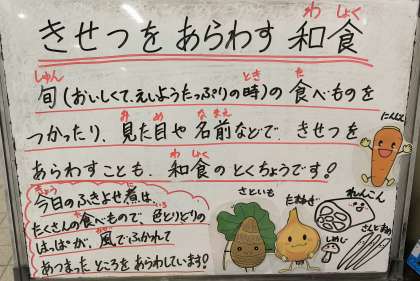 わ しょく
きせつをあらわす 和食
しゅん とき た
旬(おいしくて、えいようたっぷりの時)の食べものを
み め な まえ
つかったり、見た目や名前などで、きせつを
わ しょく
あらわすことも、和食のとくちょうです!
きょう に
今日のふきよせ煮は、
た いろ
たくさんの食べもので、色とりどりの
かぜ
はっぱが、風でふかれて
あつまったところをあらわしています!
にんじん
さといも
たまねぎ
れんこん
しめじ
さんどまめ